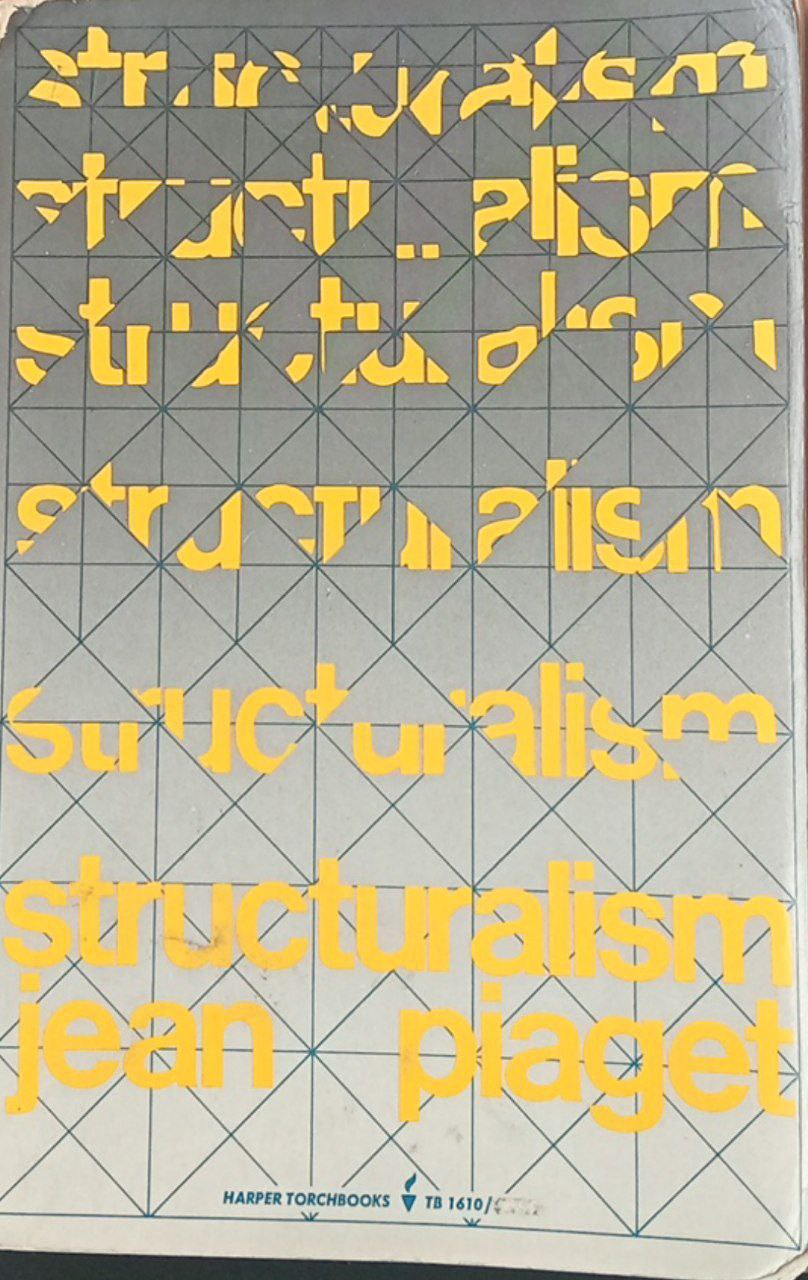 structuralism
structuralism
structuralism
structuralism
structuralism
structuralism
jean piaget
HARPER TORCHBOOKS TB 1610/